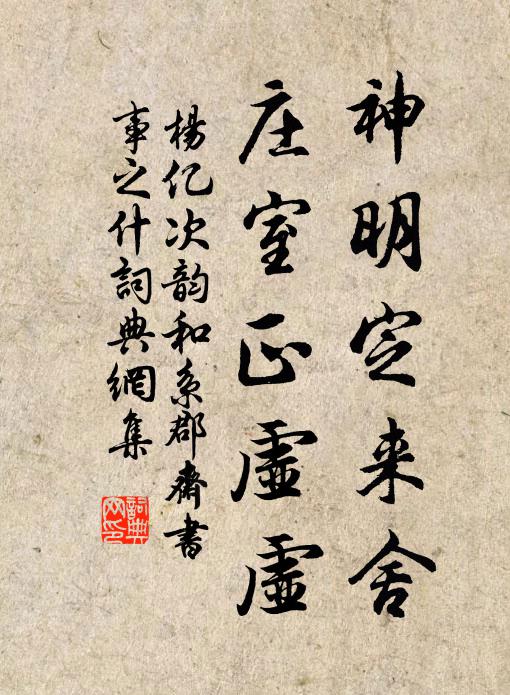 神明定来舍
庄室正虚虚
杨亿次韵和系郡斋书
事之什词典网集
詞典网印